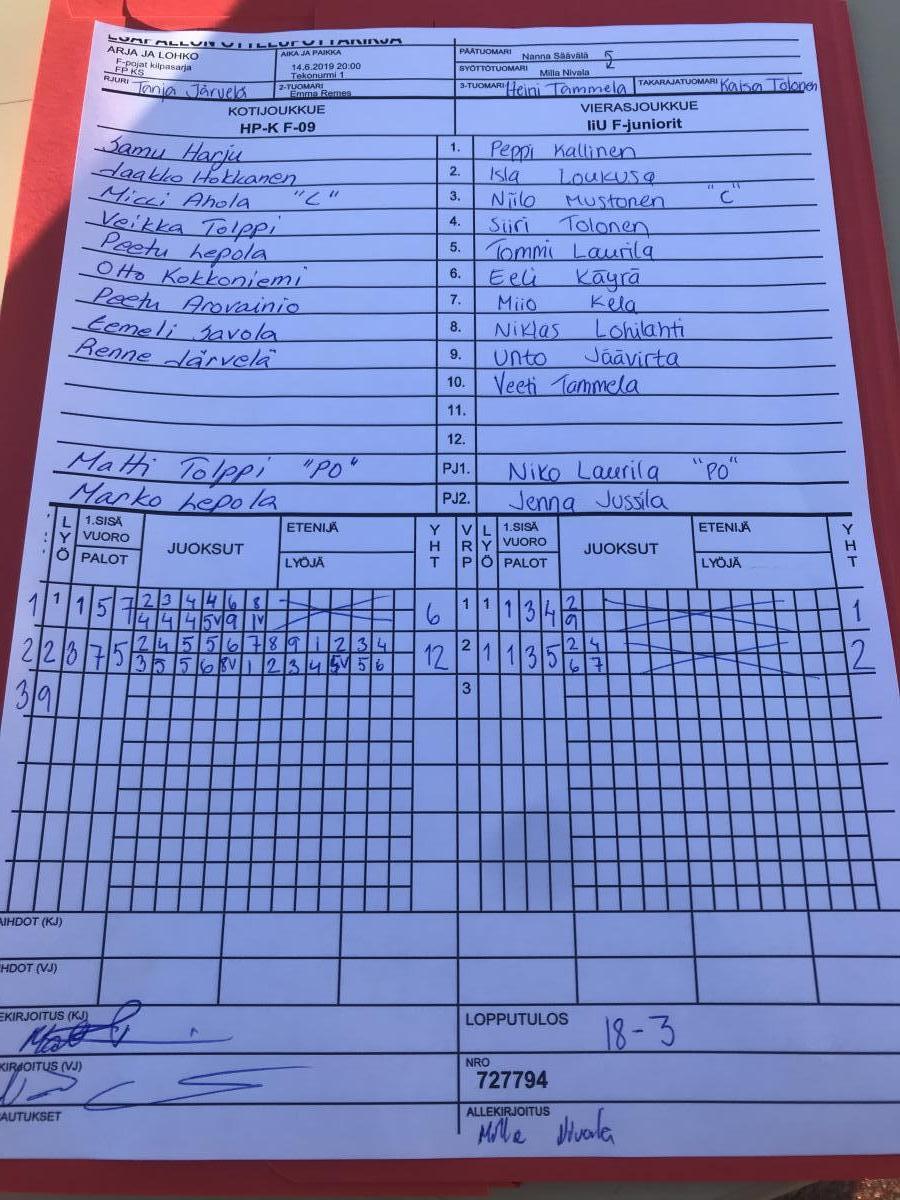 ESÄPALLON OTTELUPÖYTÄKIRJA
ARJA JA LOHKO
F-pojat kilpasarja
FP KS
AIKA JA PAIKKA
14.6.2019 20:00
Tekonurmi 1
PÄÄTUOMARI Nanna Säävälä
SYÖTTÖTUOMARI Milla Nivala
RJURI Tanja Järvelä
2-TUOMARI Emma Remes
3-TUOMARI Heini Tammela
TAKARAJATUOMARI Kaisa Tolonen
KOTIJOUKKUE VIERASJOUKKUE
HP-K F-09 IiU F-juniorit
Samu Harju 1. Peppi Kallinen
Jaakko Hokkanen 2. Isla Loukusa
Micci Ahola "C" 3. Niilo Mustonen "C"
Veikka Tolppi 4. Siiri Tolonen
Peetu Lepola 5. Tommi Laurila
Otto Kokkoniemi 6. Eeli Käyrä
Peetu Arovainio 7. Miio Kela
Eemeli Savola 8. Niklas Lohilahti
Renne Järvelä 9. Unto Jäävirta
10. Veeti Tammela
11.
12.
Matti Tolppi "PO" PJ1. Niko Laurila "PO"
Marko Lepola PJ2. Jenna Jussila
LYÖ 1.SISÄ VUORO PALOT JUOKSUT ETENIJÄ LYÖJÄ YHT VRP LYÖ 1.SISÄ VUORO PALOT JUOKSUT ETENIJÄ LYÖJÄ YHT
1 1 1 5 7 2 3 4 4 6 8 6 1 1 1 3 4 2 1
4 4 4 5V 9 1V 9
2 2 3 7 5 2 4 5 5 6 7 8 9 1 2 3 4 12 2 1 1 3 5 2 4 2
3 5 5 6 8V 1 2 3 4 5V 5 6 6 7
3 9 3
AIHDOT (KJ)
IHDOT (VJ)
EKIRJOITUS (KJ)
LOPPUTULOS 18-3
KIRJOITUS (VJ)
NRO
727794
AUTUKSET
ALLEKIRJOITUS
Milla Nivala